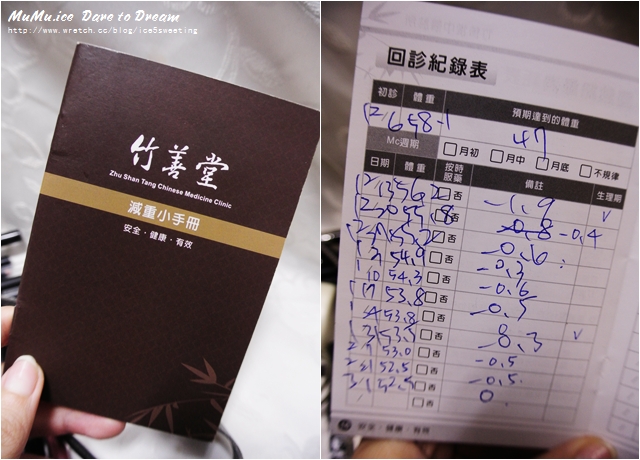 MuMu.ice Dare to Dream
http://www.wretch.cc/blog/ice5sweeting
竹善堂
Zhu Shan Tang Chinese Medicine Clinic
減重小手冊
安全・健康・有效
回診紀錄表
初診 體重 預期達到的體重
12/6 58.1 47
Mc週期 □月初 □月中 □月底 □不規律
日期 體重 按時服藥 備註 生理期
12/13 56.2 □否 -1.9 v
□否 -0.4
□否 -0.6
54.9 □否 -0.3
1/10 54.3 □否 -0.6
53.8 □否 -0.5
53.8 □否 0
□否 -0.3 v
53.0 □否 -0.5
52.5 □否 -0.5
52.5 □否 0
□否
安全・健康・有效